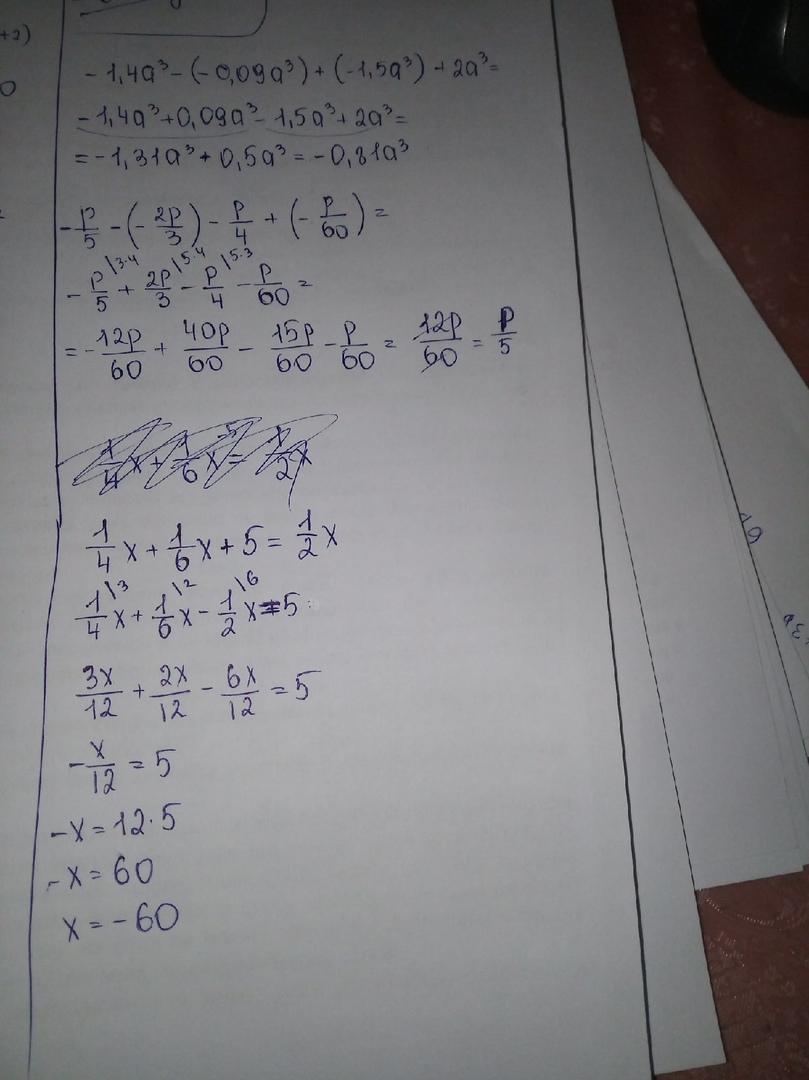 +2)
0
-1,4a³-(-0,09a³)+(-1,5a³)+2a³=
-1,4a³+0,09a³-1,5a³+2a³=
=-1,31a³+0,5a³=-0,81a³
-p/5-(-2p/3)-p/4+(-p/60)=
-p/5\3·4+2p/3\5·4-p/4\5·3-p/60=
=-12p/60+40p/60-15p/60-p/60=12p/60=p/5
1/4x+1/6x+5=1/2x
1/4\3x+1/6\2x-1/2\6x=5
3x/12+2x/12-6x/12=5
-x/12=5
-x=12·5
-x=60
x=-60